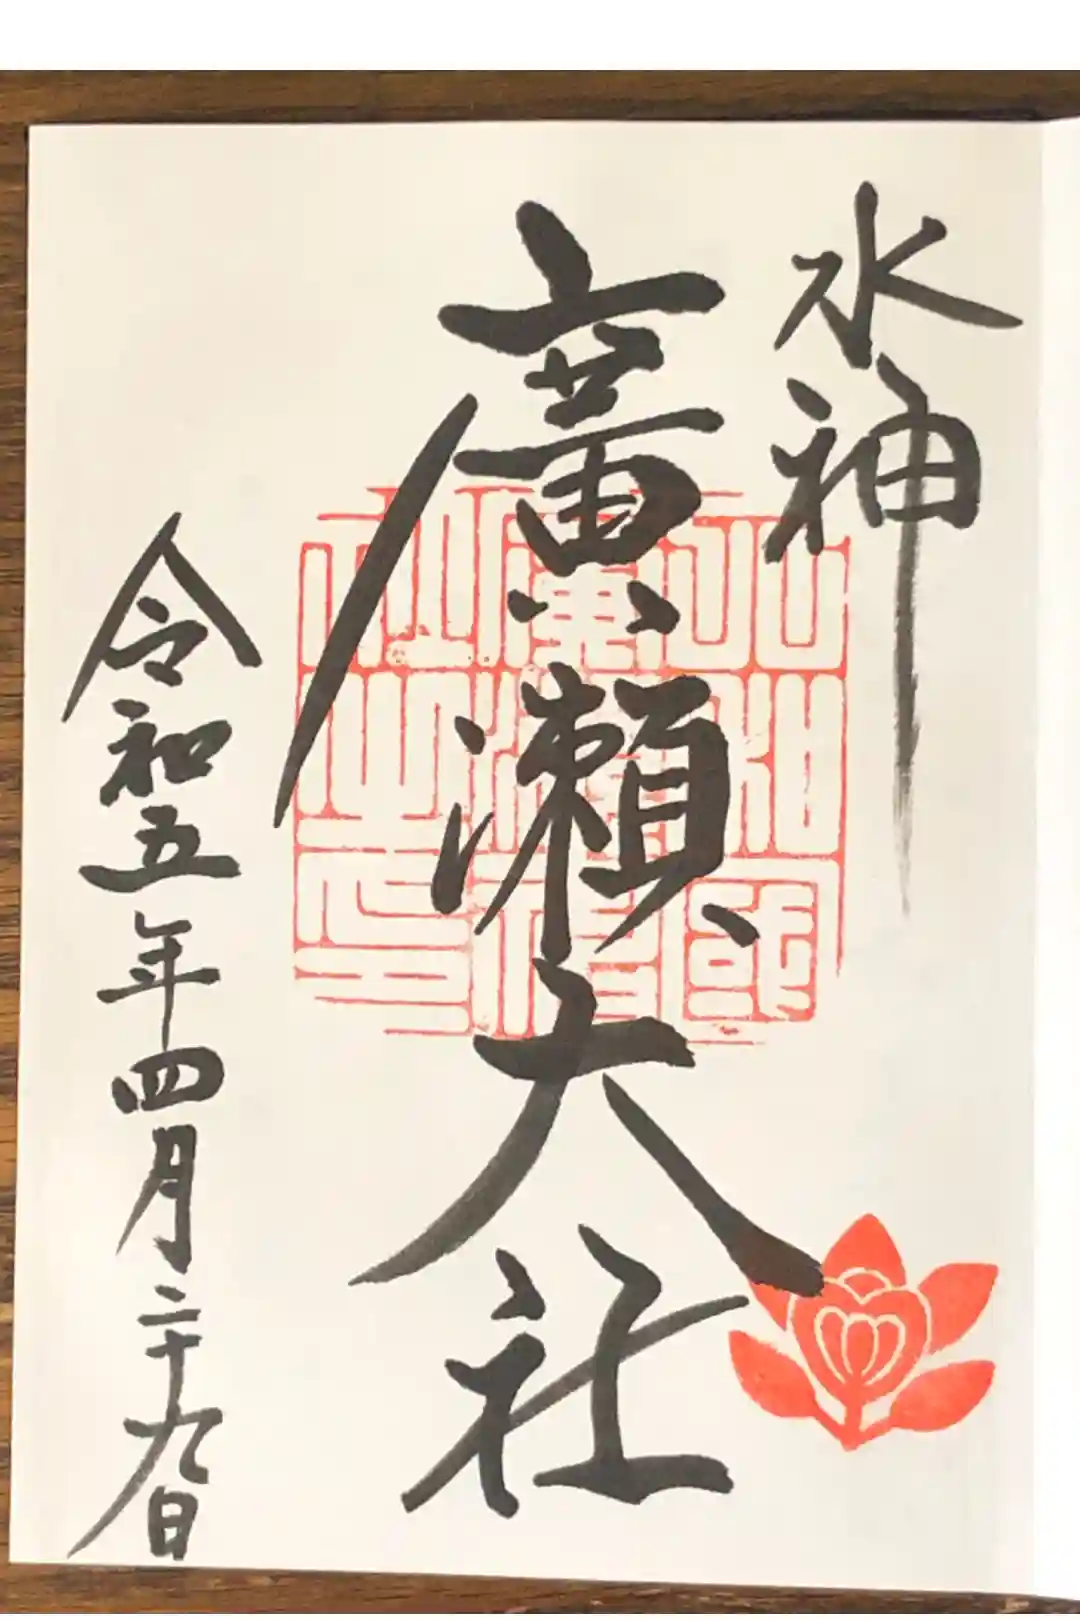 水神
廣瀨大社
令和五年四月二十九日